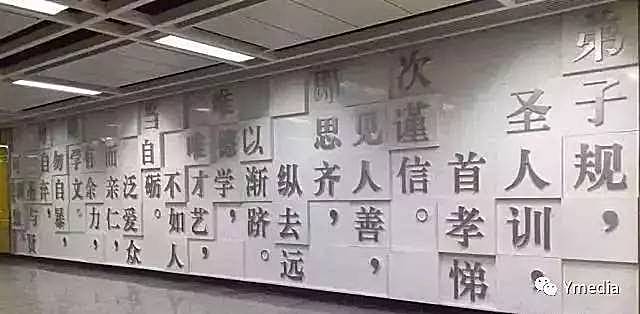 弟子规，
圣人训，
首孝悌
次谨信。
见人善，
即思齐，
纵去远
以渐跻。
唯德学，
唯才艺，
不如人
当自砺。
泛爱众
而亲仁，
有余力，
学文。
勿自暴，
自弃，
与贤
Ymedia